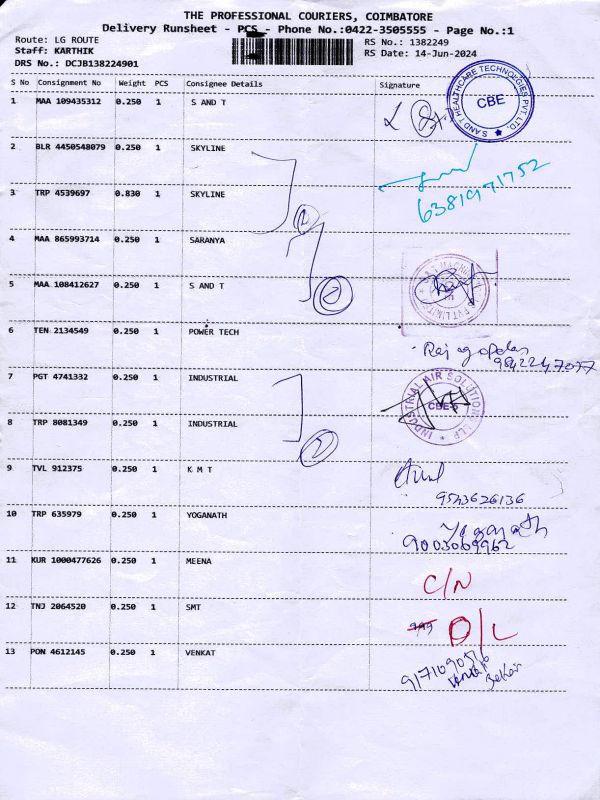 THE PROFESSIONAL COURIERS, COIMBATORE
Delivery Runsheet - PCS - Phone No.:0422-3505555 - Page No.:1
Route: LG ROUTE RS No.: 1382249
Staff: KARTHIK RS Date: 14-Jun-2024
DRS No.: DCJB138224901
S No Consignment No Weight PCS Consignee Details Signature
1 MAA 109435312 0.250 1 S AND T
S AND T HEALTHCARE TECHNOLOGIES PVT. LTD. CBE
2 BLR 4450548079 0.250 1 SKYLINE
6381971752
3 TRP 4539697 0.830 1 SKYLINE
2
4 MAA 865993714 0.250 1 SARANYA
5 MAA 108412627 0.250 1 S AND T
2
6 TEN 2134549 0.250 1 POWER TECH
Rajagopalan
9842247077
7 PGT 4741332 0.250 1 INDUSTRIAL
INDUSTRIAL AIR SOLUTIONS LLP CBE-6
8 TRP 8081349 0.250 1 INDUSTRIAL
9 TVL 912375 0.250 1 K M T
9543626136
10 TRP 635979 0.250 1 YOGANATH
Yoganath
9003069962
11 KUR 1000477626 0.250 1 MEENA
C/N
12 TNJ 2064520 0.250 1 SMT
O/L
13 PON 4612145 0.250 1 VENKAT
9171090516